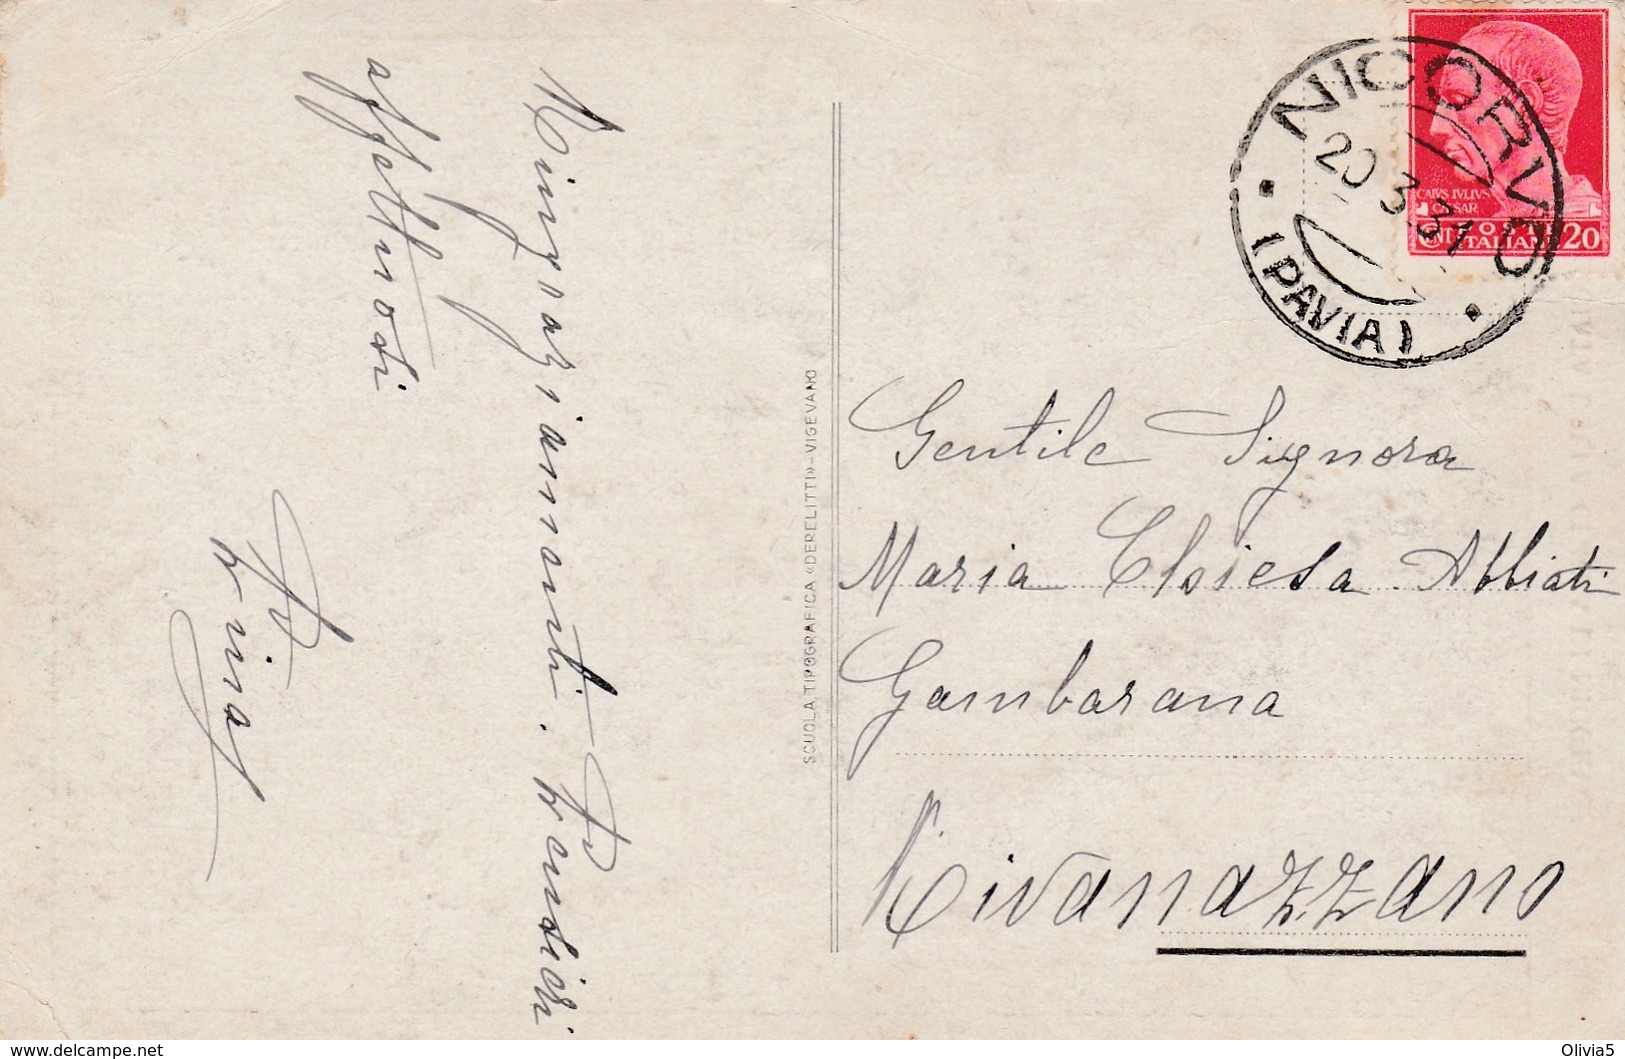 Ringraziamenti. Pensieri
affettuosi
Pierina
SCUOLA TIPOGRAFICA «DERELITTI» - VIGEVANO
NICORVO
20 3 31
(PAVIA)
CAIVS IVLIVS
CAESAR
POSTE
CENT ITALIANE 20
Gentile Signora
Maria Abbiati
Gambarana
Rivanazzano
www.delcampe.net
Olivia5